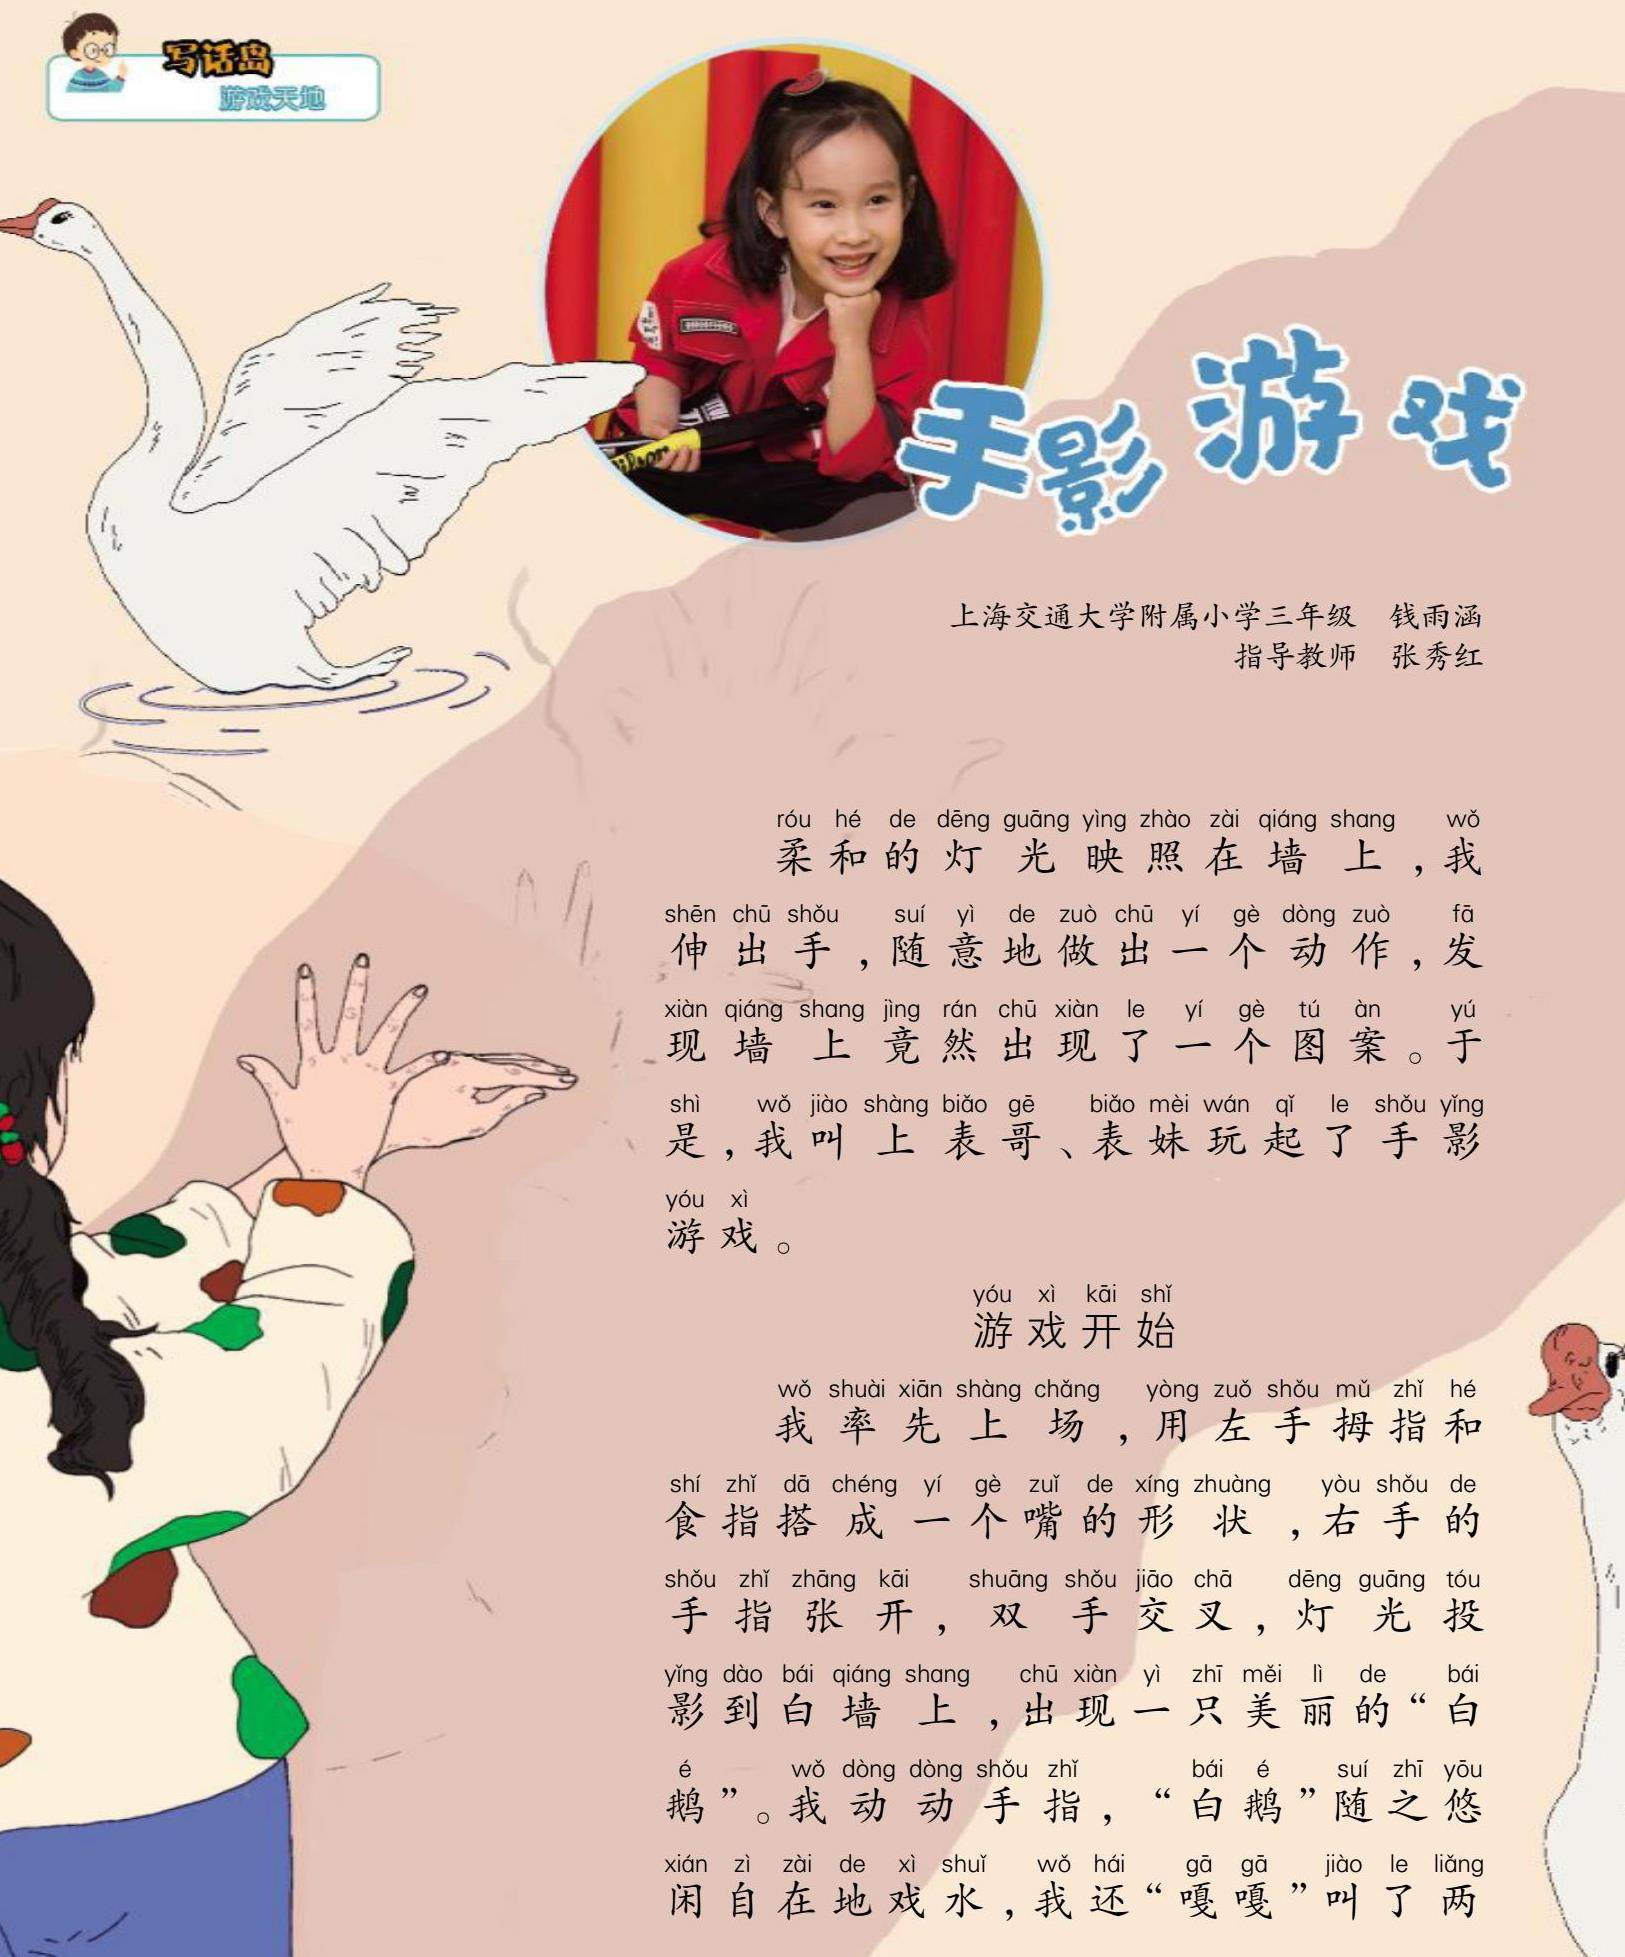 写话岛
游戏天地
手影游戏
上海交通大学附属小学三年级 钱雨涵
指导教师 张秀红
róu hé de dēng guāng yìng zhào zài qiáng shang wǒ
柔和的灯光映照在墙上，我
shēn chū shǒu suí yì de zuò chū yí gè dòng zuò fā
伸出手，随意地做出一个动作，发
xiàn qiáng shang jìng rán chū xiàn le yí gè tú àn yú
现墙上竟然出现了一个图案。于
shì wǒ jiào shàng biǎo gē biǎo mèi wán qǐ le shǒu yǐng
是，我叫上表哥、表妹玩起了手影
yóu xì
游戏。
yóu xì kāi shǐ
游戏开始
wǒ shuài xiān shàng chǎng yòng zuǒ shǒu mǔ zhǐ hé
我率先上场，用左手拇指和
shí zhǐ dā chéng yí gè zuǐ de xíng zhuàng yòu shǒu de
食指搭成一个嘴的形状，右手的
shǒu zhǐ zhāng kāi shuāng shǒu jiāo chā dēng guāng tóu
手指张开，双手交叉，灯光投
yǐng dào bái qiáng shang chū xiàn yì zhī měi lì de bái
影到白墙上，出现一只美丽的“白
é wǒ dòng dòng shǒu zhǐ bái é suí zhī yōu
鹅”。我动动手指，“白鹅”随之悠
xián zì zài de xì shuǐ wǒ hái gā gā jiào le liǎng
闲自在地戏水，我还“嘎嘎”叫了两